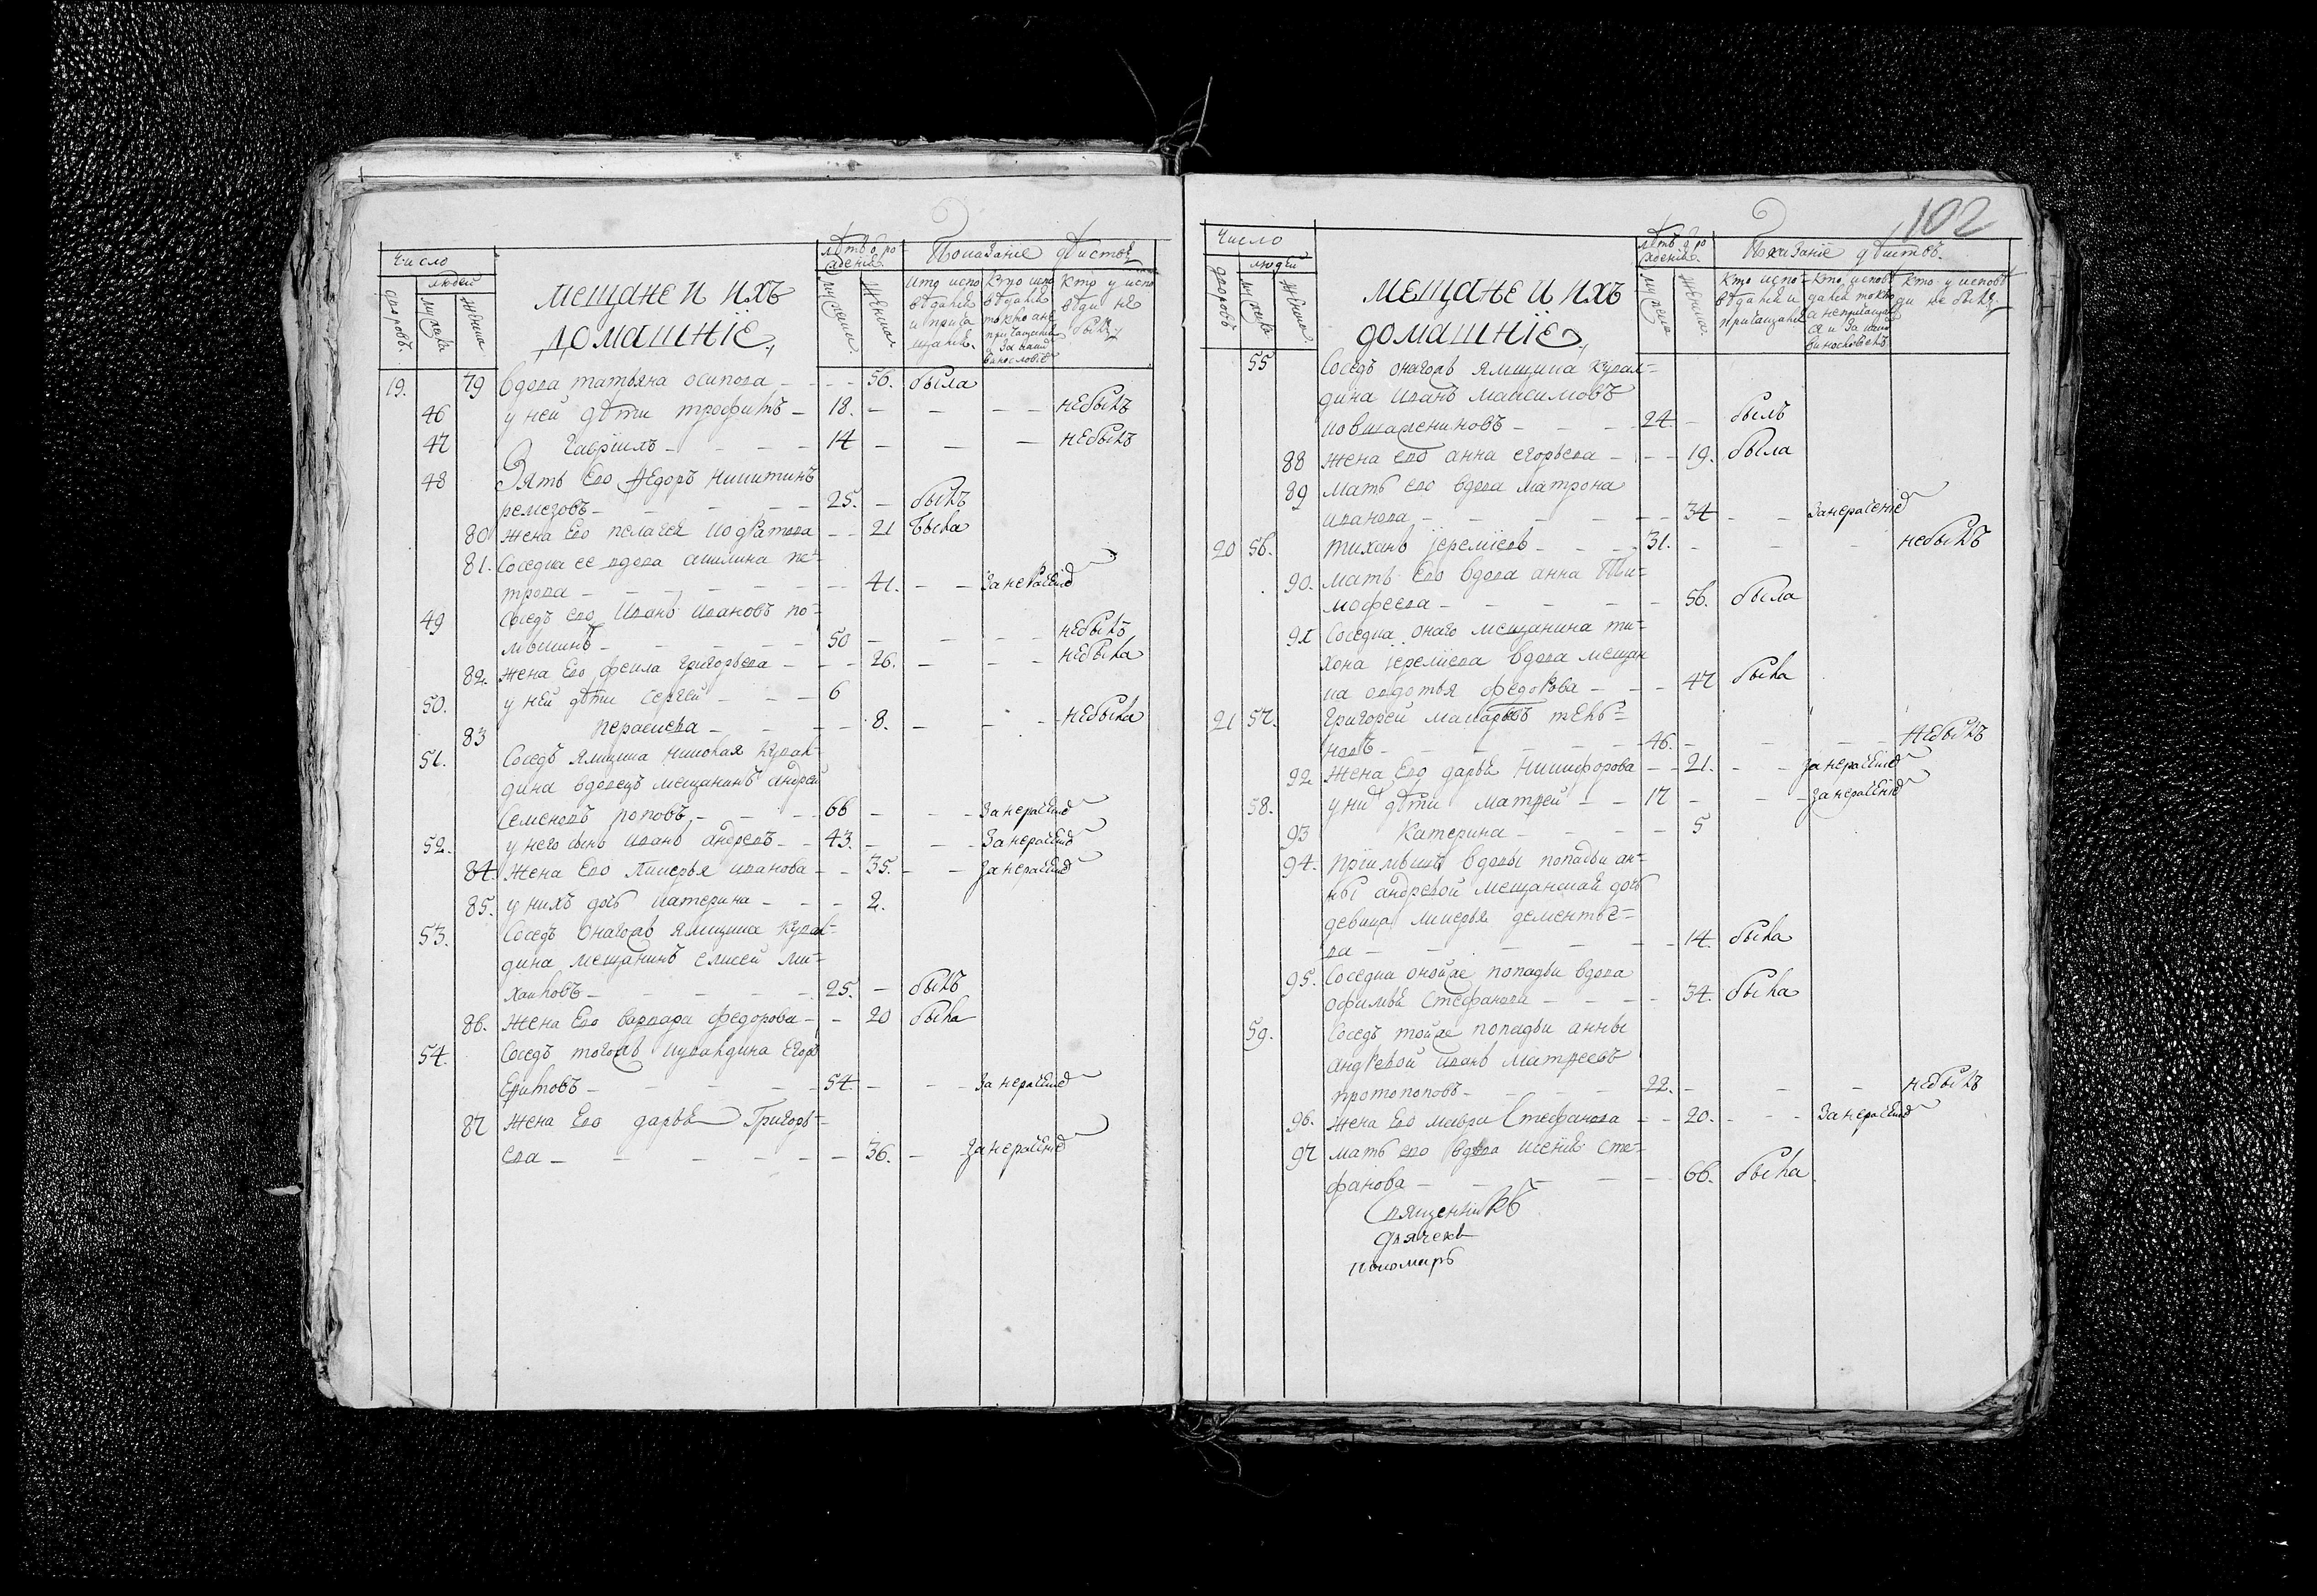 Число
людей
дворовъ.
мужеска
женска
мещане и ихъ
домашніе,
лѣтъ о ро
жденія.
мужеска.
женска.
Показаніе дѣиствъ
кто испо
вѣдался
и прича
щался.
кто испо
вѣдался
токмо а не
причащался
и за какимъ
винословіемъ
кто у испо
вѣди не
былъ,
19. 79 вдова татьяна осипова – – – 56. была
46 у ней дѣти трофимъ – 18. – – – – небылъ
47 Гавріилъ – – – 14 – – – небылъ
48 Зять его Ѳедоръ никитинъ
ремезовъ – – – – – 25. – былъ
80 жена его пелагея кодратова – – 21 Была
81. Соседка ее вдова акилина пе-
трова – – – – – – 41. – – За нераченіе
49 Соседъ его Иванъ ивановъ по-
50 – – – – небылъ
82. жена его фекла григорьева – – – 26. – – – небыла
50. у ней дѣти Сергей – – – 6
83 перасиева – – – – 8. – – – небыла
51. Соседъ ямщика николая кувал-
дина вдовецъ мещанинъ андрей
Семеновъ поповъ – – – – 66 – – – За нераченіе
52. у него сынъ иванъ андревъ – – 43. – – – За нераченіе
84. жена его Гликерья иванова – – 35. – – За нераченіе
85. у нихъ дочь катерина – – – 2.
53. Соседъ онагожъ ямщика кувал-
дина мещанинъ елисей ми-
хаиловъ – – – – – 25. – былъ
86. жена его варвара федорова – – 20 была
54. Соседъ тогожъ кувалдина егоръ
– – – – – 54 – – – За нераченіе
87 жена его дарья Григорь-
ева – – – – – – 36. – – За нераченіе
102
Число
людей
дворовъ
мужеска
женска
мещане и ихъ
домашніе,
лѣтъ о ро
жденія.
мужеска
женска.
Показаніе дѣиствъ.
кто испо-
вѣдался и
причащался
кто испове
дался токмо
а непричащал
ся и за каким
винословіемъ
кто у испове
ди не былъ,
55 Соседъ онагожъ ямщика кувал-
дина иванъ максимовъ
– – – 24. – былъ
88 жена его анна егорьева – – – 19. была
89 мать его вдова матрона
иванова – – – – – – 34 – – За нераченіе
20 56. тиханъ іереміевъ – – – 31. – – – небылъ
90. мать его вдова анна Ти-
мофеева – – – – – 56. была
91 Соседка онаго мещанина ти-
хона іереміева вдова мещан
ка авдотья федорова – – – 47 была
21 57. григорей макаровъ
– – – – – 46. – – – – небылъ
92 жена его дарья никифорова – – 21. – – За нераченіе
58. у ни дѣти матвей – – 17 – – – За нераченіе
93 Катерина – – – – 5
94. пріимышъ вдовы попадьи ан-
ны андревой мещанской дочь
девица гликерья дементье-
ва – – – – – – 14. была
95. Соседка онойже попадьи вдова
офимья стефанова – – – – 34. была
59. Соседъ тойже попадьи анны
андревой иванъ матвеевъ
протопоповъ – – – – 22. – – – небылъ
96. жена его мавра Стефанова – – 20. – – – За нераченіе
97 мать его вдова ксенія сте-
фанова – – – – – 66. была
Священникъ
дьячекъ
пономарь